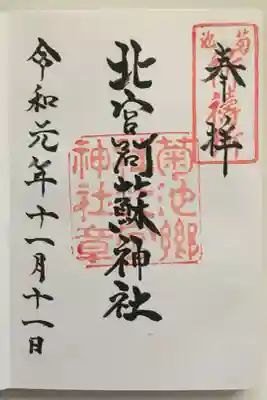 奉拝
北宮阿蘇神社
菊池郷
神社章
令和元年十一月十一日